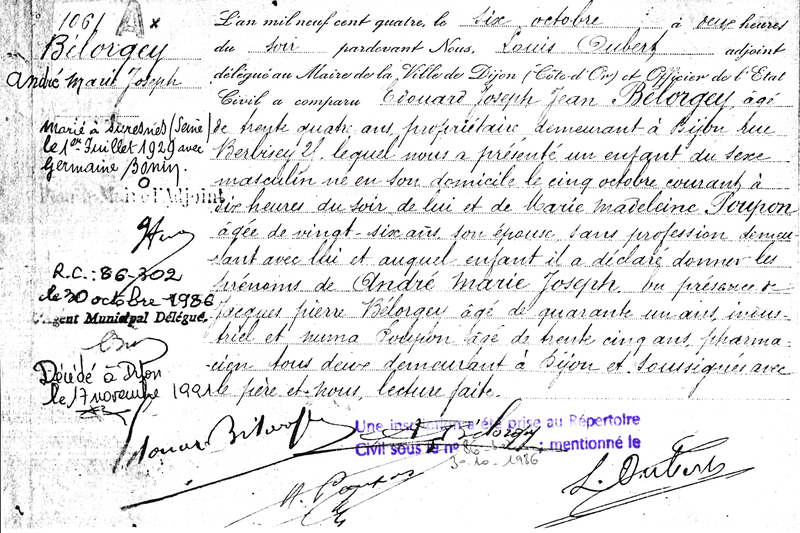 1061
A
Bélorgey
André Marie Joseph
Marié à Suresnes (Seine)
le 1er Juillet 1929 avec
Germaine Bonin.
Pour le Maire l'Adjoint
R.C.: 86-302
le 30 octobre 1986
L'Agent Municipal Délégué.
Décédé à Dijon
le 17 novembre 1991
L'an mil neuf cent quatre, le six octobre à deux heures
du soir pardevant Nous, Louis Dubert adjoint
délégué au Maire de la Ville de Dijon (Côte-d'Or) et Officier de l'Etat
Civil a comparu Edouard Joseph Jean Bélorgey, âgé
de trente quatre ans, propriétaire demeurant à Dijon rue
Berbisey 21, lequel nous a présenté un enfant du sexe
masculin né en son domicile le cinq octobre courant à
dix heures du soir de lui et de Marie Madeleine Poupon
âgée de vingt-six ans, son épouse, sans profession demeu-
rant avec lui et auquel enfant il a déclaré donner les
prénoms de André Marie Joseph. En présence de
Jacques pierre Bélorgey âgé de quarante un ans, indus-
triel et numa Poupon âgé de trente cinq ans, pharma-
cien tous deux demeurant à Dijon et soussignés avec
le père et nous, lecture faite.
Une inscription a été prise au Répertoire
Civil sous le n° 86-302; mentionné le
30-10-1986
Bélorgey
L. Dubert